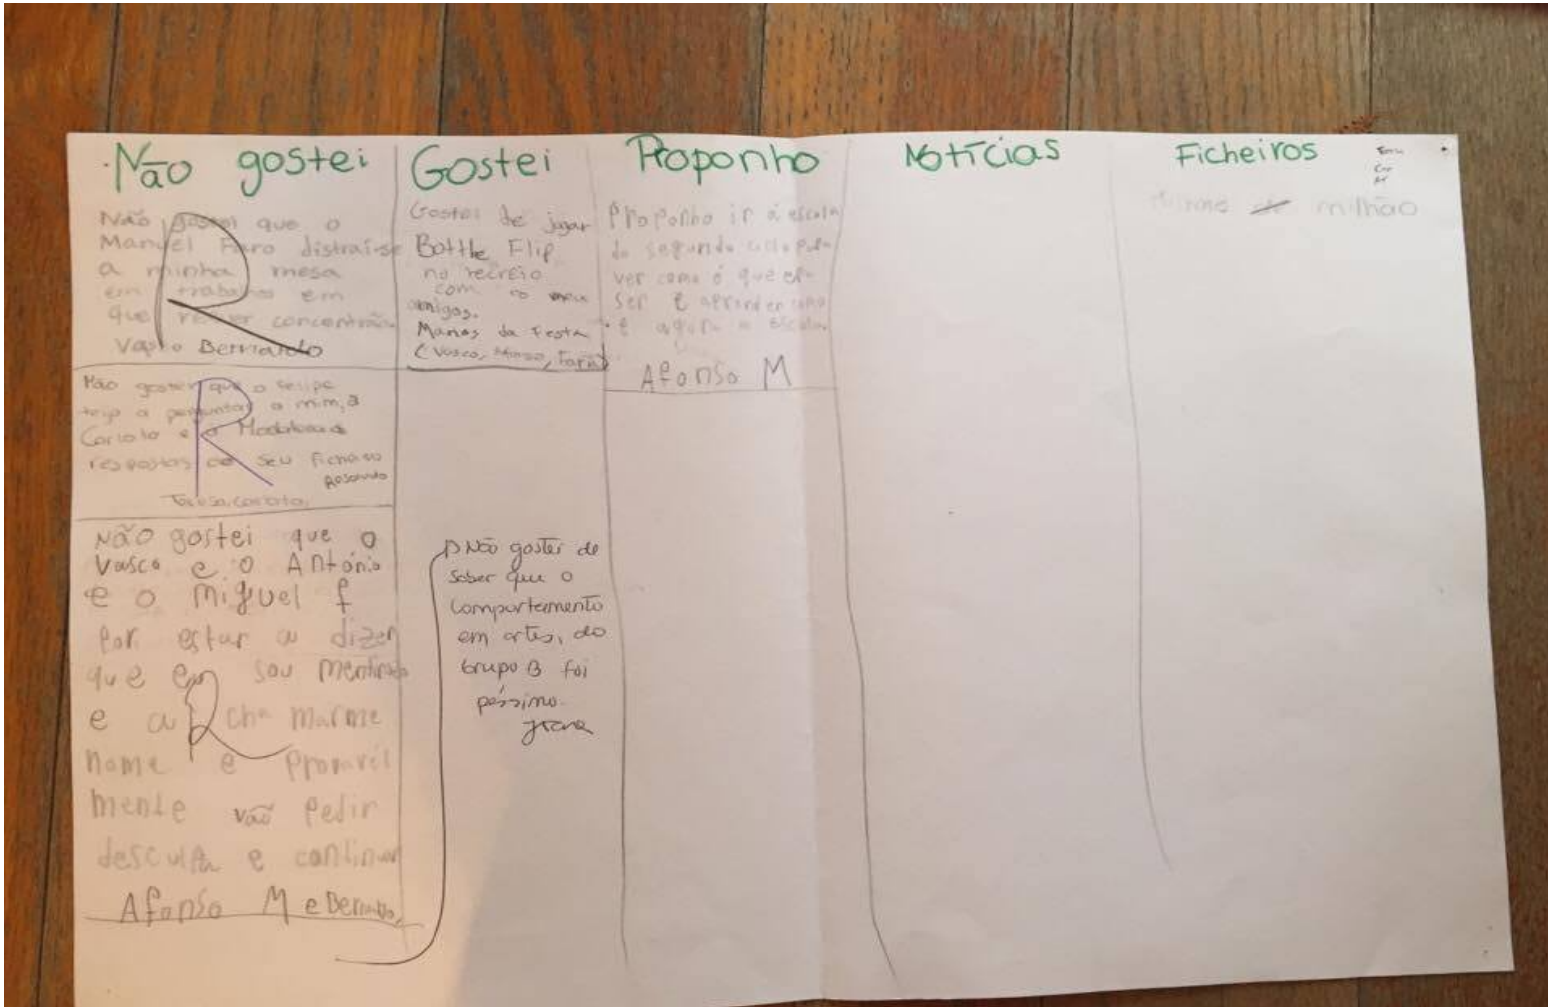 Não gostei
Não gostei que o
Manuel Faro distraí-se
a minha mesa
em trabalho em
que requer concentração.
Vasco Bernardo
Não gostei que o
a perguntar a mim, à
respostas do seu ficheiro
Teresa, Carlota,
Não gostei que o
Vasco e o António
e o Miguel f
por estar a dizer
que eu sou mentiroso
e a cha marme
nome e provavél
mente vão pedir
desculpa e continuar
Afonso M e Bernardo,
Gostei
Gostei de jogar
Bottle Flip
no recreio
com os meus
amigos.
Manos da Festa
(Vasco, Faro)
Não gostei de
saber que o
comportamento
em artes, do
Grupo B foi
péssimo.
Proponho
Proponho ir á escola
do segundo ciclo para
ver como é que
ser e aprender como
é a escola.
Afonso M
Notícias
Ficheiros
milhão